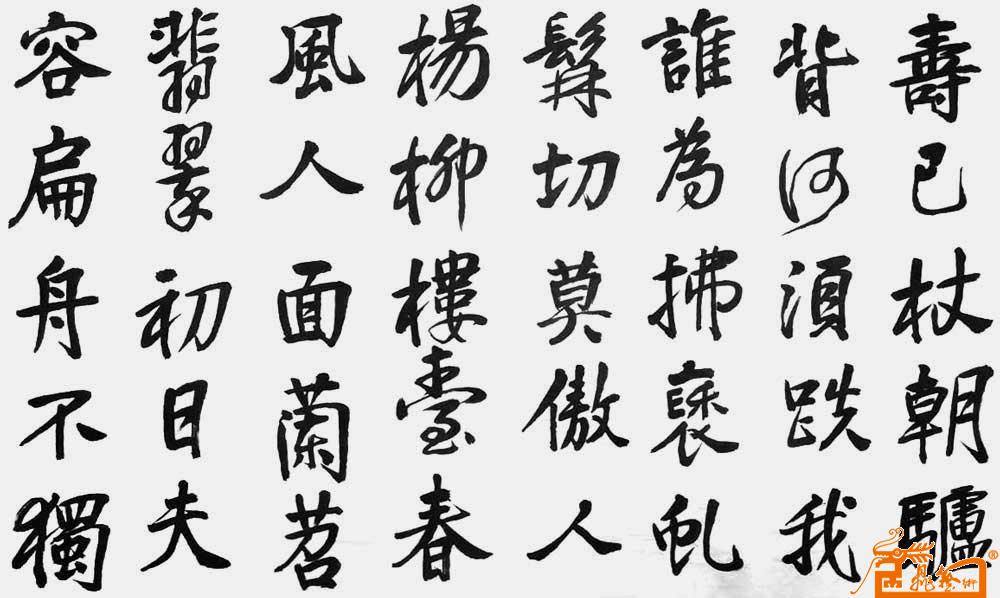 壽已杖朝驢
背何須跌我
誰為拂褎虱
髯切莫傲人
楊柳樓臺春
風人面蘭苕
翡翠初日夫
容扁舟不獨